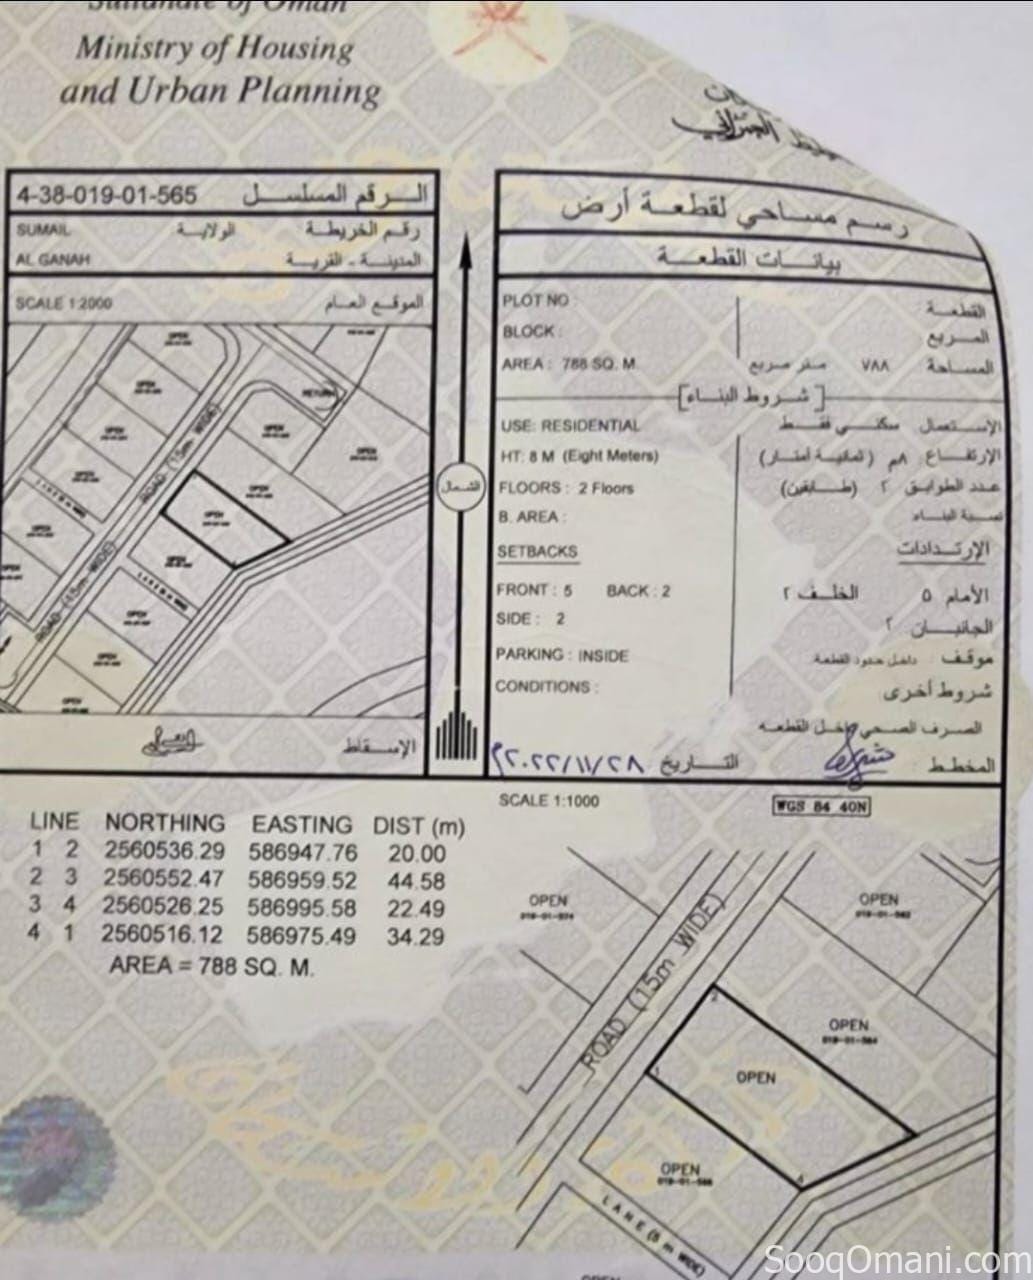 Sultanate of Oman
Ministry of Housing
and Urban Planning
4-38-019-01-565 الرقم المسلسل
SUMAIL الولاية رقم الخريطة
AL GANAH المدينة - القرية
SCALE 1:2000 الموقع العام
OPEN
OPEN
RETURN
OPEN
OPEN
OPEN
ROAD (15m WIDE)
OPEN
OPEN
OPEN
OPEN
OPEN
OPEN
OPEN
ROAD (15m WIDE)
OPEN
OPEN
OPEN
الإسقاط
الشمال
رسم مساحي لقطعة أرض
بيانات القطعة
PLOT NO : القطعة
BLOCK : المربع
AREA : 788 SQ. M. المساحة ٧٨٨ متر مربع
[شروط البناء]
USE: RESIDENTIAL الإستعمال سكني فقط
HT: 8 M (Eight Meters) الإرتفاع ٨م (ثمانية أمتار)
FLOORS : 2 Floors عدد الطوابق ٢ (طابقين)
B. AREA : نسبة البناء
SETBACKS الإرتدادات
FRONT : 5 BACK : 2 الأمام ٥ الخلف ٢
SIDE : 2 الجانبان ٢
PARKING : INSIDE موقف : داخل حدود القطعة
CONDITIONS : شروط أخرى
الصرف الصحي داخل القطعة
المخطط : التاريخ ٢٠٢٢/١١/٢٨م
SCALE 1:1000 WGS 84 40N
LINE NORTHING EASTING DIST (m)
1 2 2560536.29 586947.76 20.00
2 3 2560552.47 586959.52 44.58
3 4 2560526.25 586995.58 22.49
4 1 2560516.12 586975.49 34.29
AREA = 788 SQ. M.
OPEN
019-01-574
OPEN
ROAD (15m WIDE)
2
OPEN
019-01-564
1
OPEN
OPEN
019-01-566
4
LANE (5 m WIDE)
OPEN
SooqOmani.com